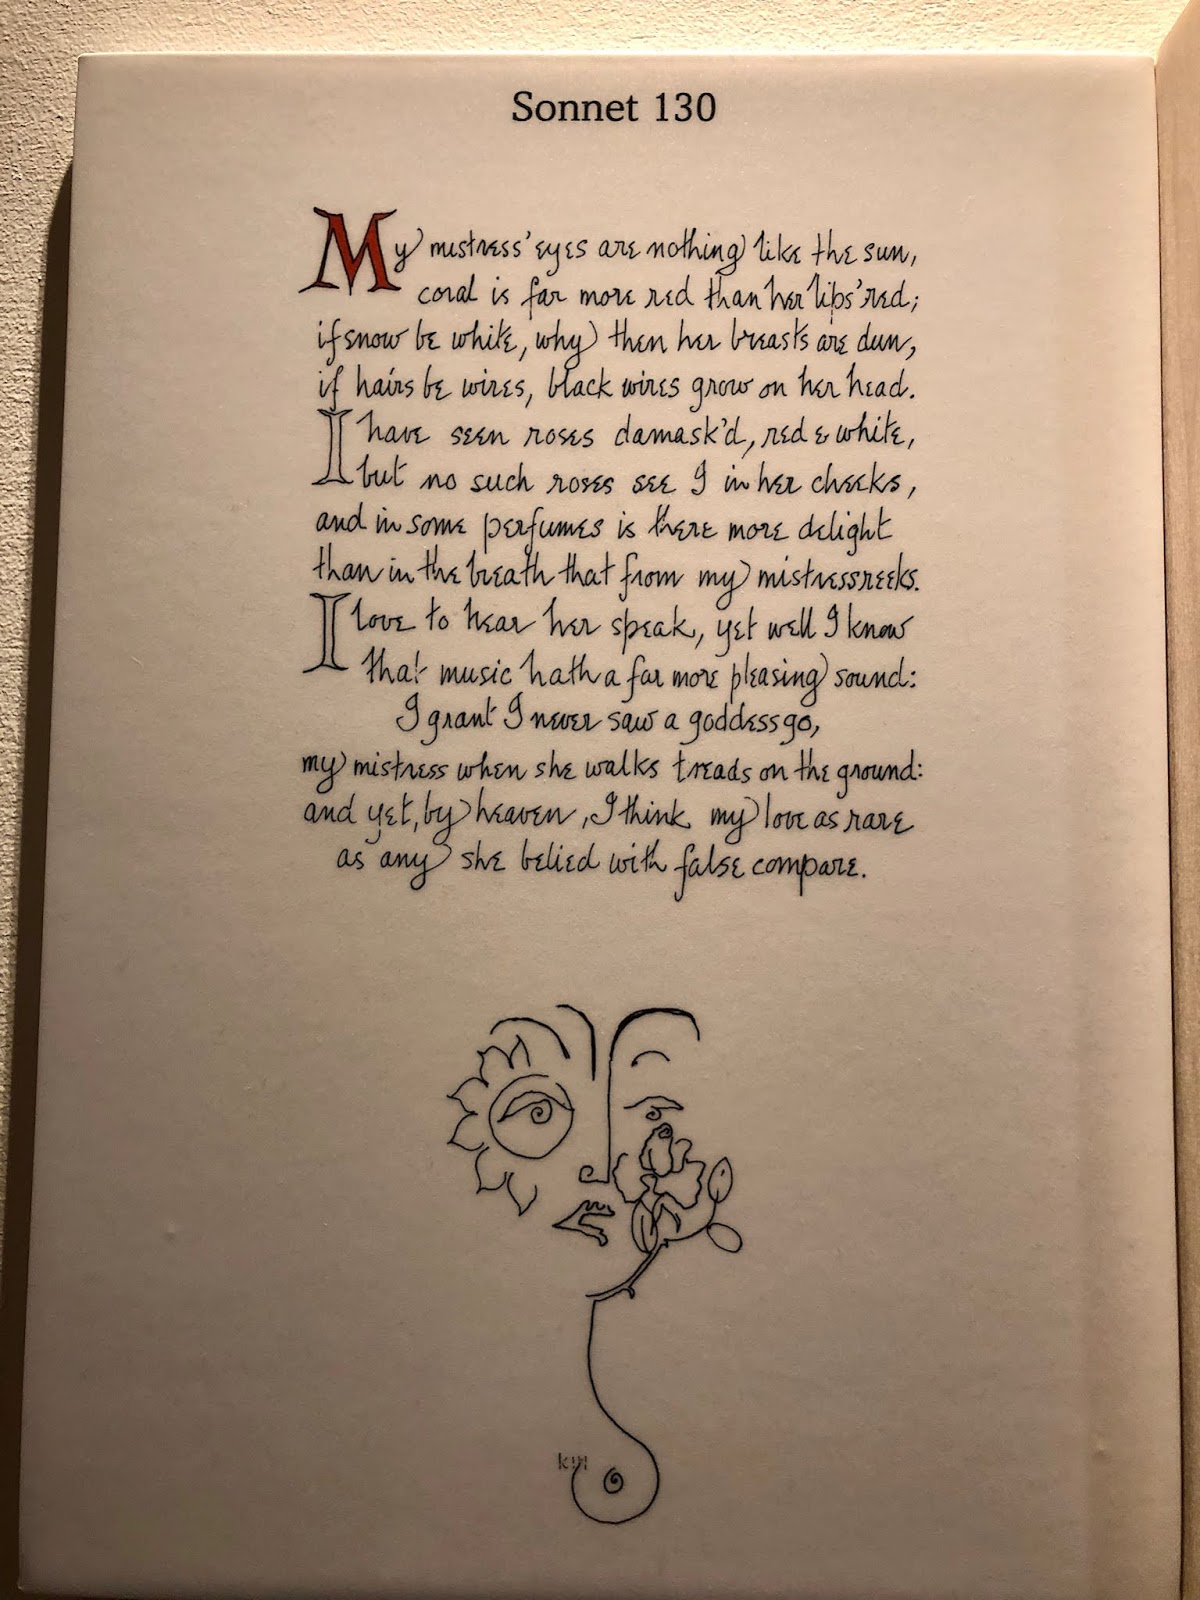 Sonnet 130
My mistress' eyes are nothing like the sun,
coral is far more red than her lips' red;
if snow be white, why then her breasts are dun,
if hairs be wires, black wires grow on her head.
I have seen roses damask'd, red & white,
but no such roses see I in her cheeks,
and in some perfumes is there more delight
than in the breath that from my mistress reeks.
I love to hear her speak, yet well I know
that music hath a far more pleasing sound:
I grant I never saw a goddess go,
my mistress when she walks treads on the ground:
and yet, by heaven, I think my love as rare
as any she belied with false compare.